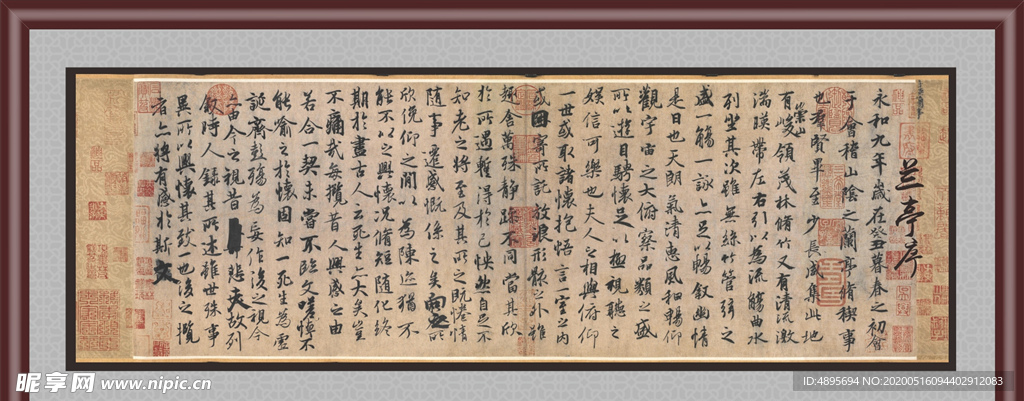 兰亭序
永和九年歲在癸丑暮春之初會
于會稽山陰之蘭亭脩稧事
也羣賢畢至少長咸集此地
有崇山峻領茂林脩竹又有清流激
湍暎帶左右引以為流觴曲水
列坐其次雖無絲竹管弦之
盛一觴一詠亦足以暢叙幽情
是日也天朗氣清惠風和暢仰
觀宇宙之大俯察品類之盛
所以遊目騁懷足以極視聽之
娛信可樂也夫人之相與俯仰
一世或取諸懷抱悟言一室之內
或因寄所託放浪形骸之外雖
趣舍萬殊靜躁不同當其欣
於所遇暫得於己怏然自足不
知老之將至及其所之既惓情
隨事遷感慨係之矣向之所
欣俛仰之間以為陳迹猶不
能不以之興懷況脩短隨化終
期於盡古人云死生亦大矣豈
不痛哉每攬昔人興感之由
若合一契未嘗不臨文嗟悼不
能喻之於懷固知一死生為虛
誕齊彭殤為妄作後之視今
亦由今之視昔悲夫故列
叙時人錄其所述雖世殊事
異所以興懷其致一也後之攬
者亦將有感於斯文
昵享网 www.nipic.cn
ID:4895694 NO:20200516094402912083